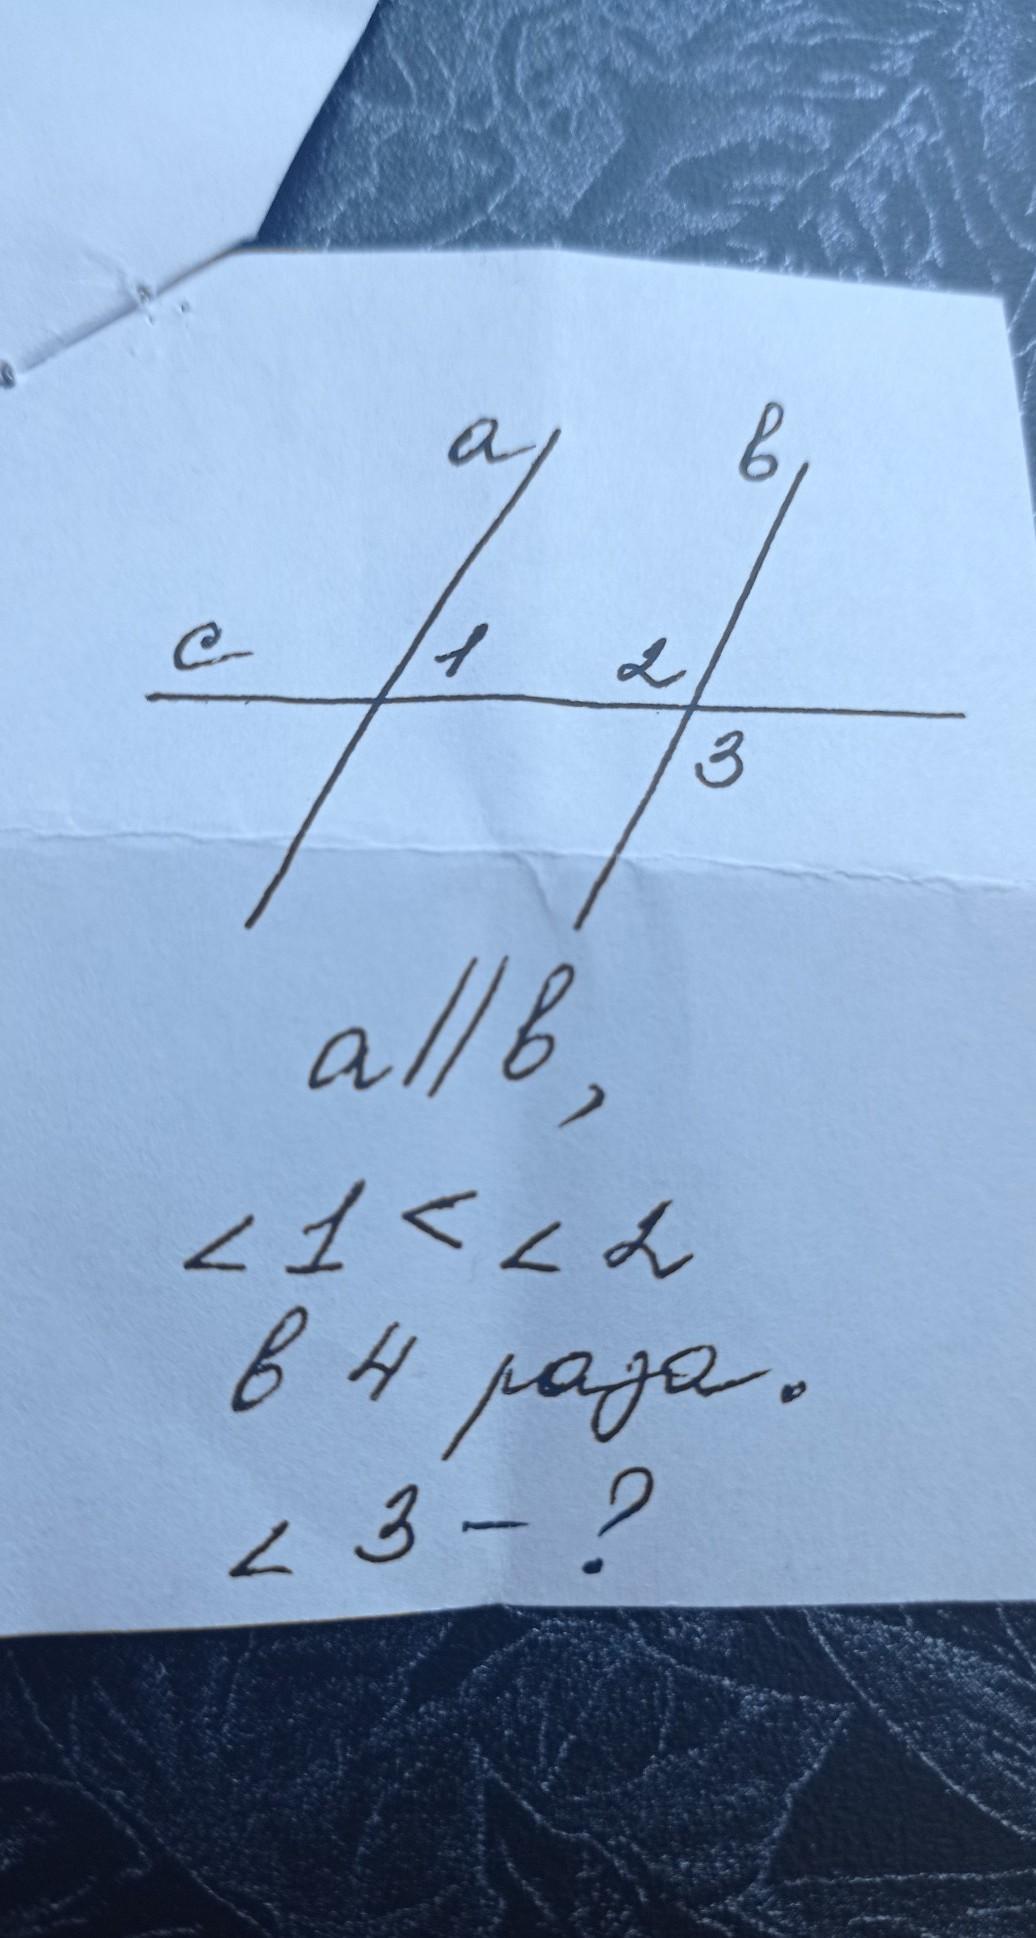 a b
c 1 2
3
a||b,
<1 < <2
в 4 раза.
<3 - ?